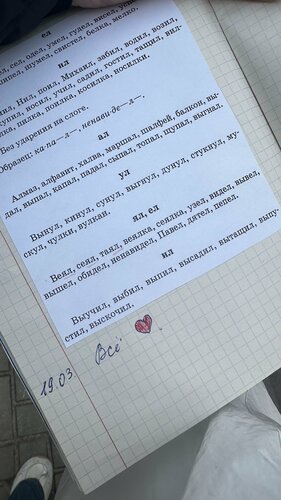 ел
ел, сел, одел, умел, гудел, висел, успел
шумел, свистел, белка, мелко.
ил
Нил, пил, Михаил, забил, водил, возил,
купил, носил, учил, садил, гостил, тащил, вил-
ка, пилка, поилка, косилка, носилки.
Без ударения на слоге.
Образец: ка-па—л—, ненави-де—л—,
ал
Алмаз, алфавит, халва, маршал, шалфей, балкон, вы-
дал, выпал, капал, падал, сыпал, топал, щупал, выгнал.
ул
Вынул, кинул, сунул, выгнул, дунул, стукнул, му-
скул, чулки, вулкан.
ял, ел
Веял, сеял, таял, веялка, сеялка, узел, видел, вывел,
вышел, обидел, ненавидел, Павел, дятел, пепел.
ил
Выучил, выбил, выпил, высадил, вытащил, выпу-
стил, выскочил.
Всё
19.03